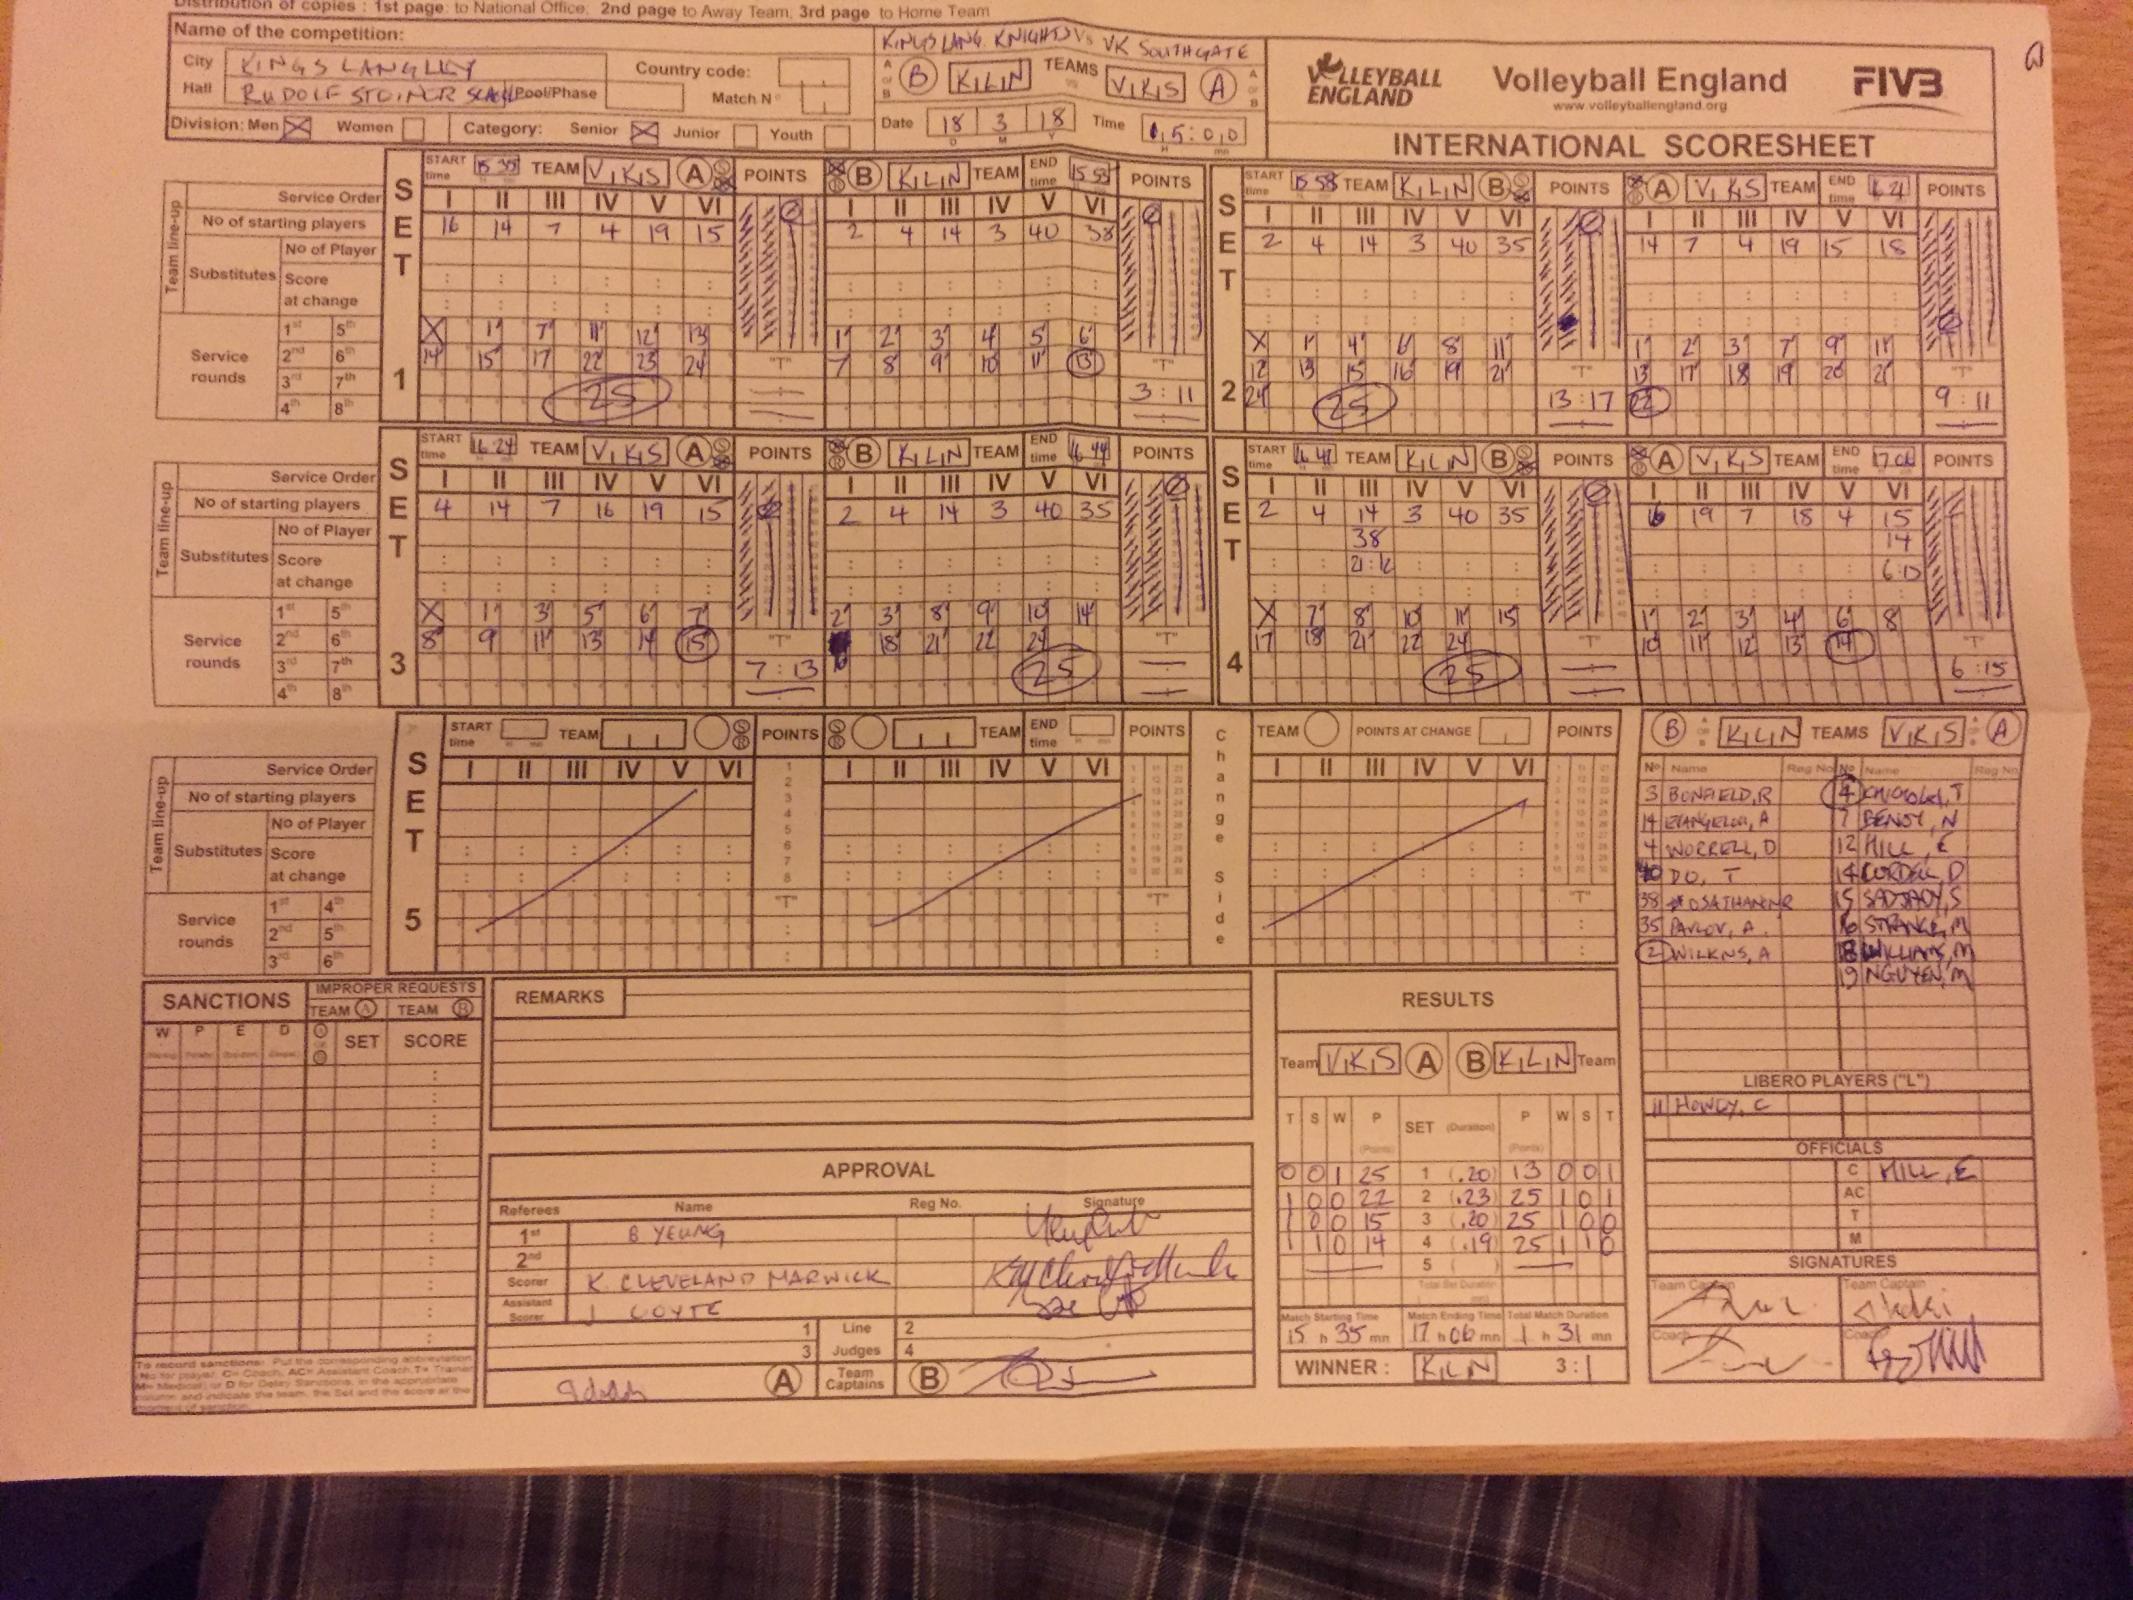 Distribution of copies : 1st page: to National Office, 2nd page to Away Team, 3rd page to Home Team
Name of the competition:
KINGS LANG. KNIGHTS Vs VK SOUTHGATE
City KINGS LANGLEY Country code:
Hall RUDOLF STEINER Pool/Phase Match N°
Division: Men Women Category: Senior Junior Youth
B KILIN TEAMS VIKIS A
Date 18 3 18 Time 15:00
VOLLEYBALL ENGLAND Volleyball England FIVB
www.volleyballengland.org
INTERNATIONAL SCORESHEET
Team line-up
Service Order
No of starting players
Substitutes
No of Player
Score at change
Service rounds
1st 5th
2nd 6th
3rd 7th
4th 8th
SET 1
START time 15 35 TEAM VIKIS A POINTS B KILIN TEAM END time 15 55 POINTS
I II III IV V VI I II III IV V VI
16 14 7 4 19 15 2 4 14 3 40 38
X 1 7 11 12 13 1 2 3 4 5 6
14 15 17 22 23 24 7 8 9 10 11 13
25
"T" 3 : 11
SET 2
START time 15 58 TEAM KILIN B POINTS A VIKIS TEAM END time 16 21 POINTS
I II III IV V VI I II III IV V VI
2 4 14 3 40 35 14 7 4 19 15 18
X 1 4 6 8 11 1 2 3 7 9 11
12 13 15 16 19 21 13 17 18 19 20 21
24 25 22
"T" 13 : 17 "T" 9 : 11
Team line-up
Service Order
No of starting players
Substitutes
No of Player
Score at change
Service rounds
1st 5th
2nd 6th
3rd 7th
4th 8th
SET 3
START time 16 24 TEAM VIKIS A POINTS B KILIN TEAM END time 16 44 POINTS
I II III IV V VI I II III IV V VI
4 14 7 16 19 15 2 4 14 3 40 35
X 1 3 5 6 7 2 3 8 9 10 14
8 9 11 13 14 15 18 21 22 24
25
"T" 7 : 13 "T"
SET 4
START time TEAM KILIN B POINTS A VIKIS TEAM END time POINTS
I II III IV V VI I II III IV V VI
2 4 14 3 40 35 16 19 7 18 4 15
38 14
X 7 8 10 11 15 1 2 3 4 6 8
17 18 21 22 24 10 11 12 13 14
25
"T" "T" 6 : 15
Team line-up
Service Order
No of starting players
Substitutes
No of Player
Score at change
Service rounds
1st 4th
2nd 5th
3rd 6th
SET 5
START time TEAM POINTS TEAM END time POINTS
I II III IV V VI I II III IV V VI
Change Side
TEAM POINTS AT CHANGE POINTS
I II III IV V VI
B KILIN TEAMS VIKIS A
No Name Reg No No Name Reg No
3 BONFIELD, R 4
14 7
4 WORRELL, D 12 HILL, E
40 DO, T 14
38 15
35 PAVLOV, A. 16 STRANGE, M
2 WILKINS, A 18 WILLIAMS, M
19 NGUYEN, M
LIBERO PLAYERS ("L")
11
OFFICIALS
C HILL, E
AC
T
M
SIGNATURES
Team Captain Team Captain
Coach Coach
SANCTIONS
IMPROPER REQUESTS
TEAM A TEAM B
W P E D SET SCORE
REMARKS
APPROVAL
Referees Name Reg No. Signature
1st B YEUNG
2nd
Scorer K. CLEVELAND MARWICK
Assistant Scorer J COYTE
1 Line 2
3 Judges 4
A Team Captains B
RESULTS
Team VIKIS A B KILIN Team
T S W P SET (Duration) P W S T
(Points) (Points)
0 0 1 25 1 (.20) 13 0 0 1
1 0 0 22 2 (.23) 25 1 0 1
1 0 0 15 3 (.20) 25 1 0 0
1 1 0 14 4 (.19) 25 1 1 0
5
Total Set Duration
Match Starting Time Match Ending Time Total Match Duration
15 h 35 mn 17 h 06 mn 1 h 31 mn
WINNER : KILN 3:1
To record sanctions: Put the corresponding abbreviation